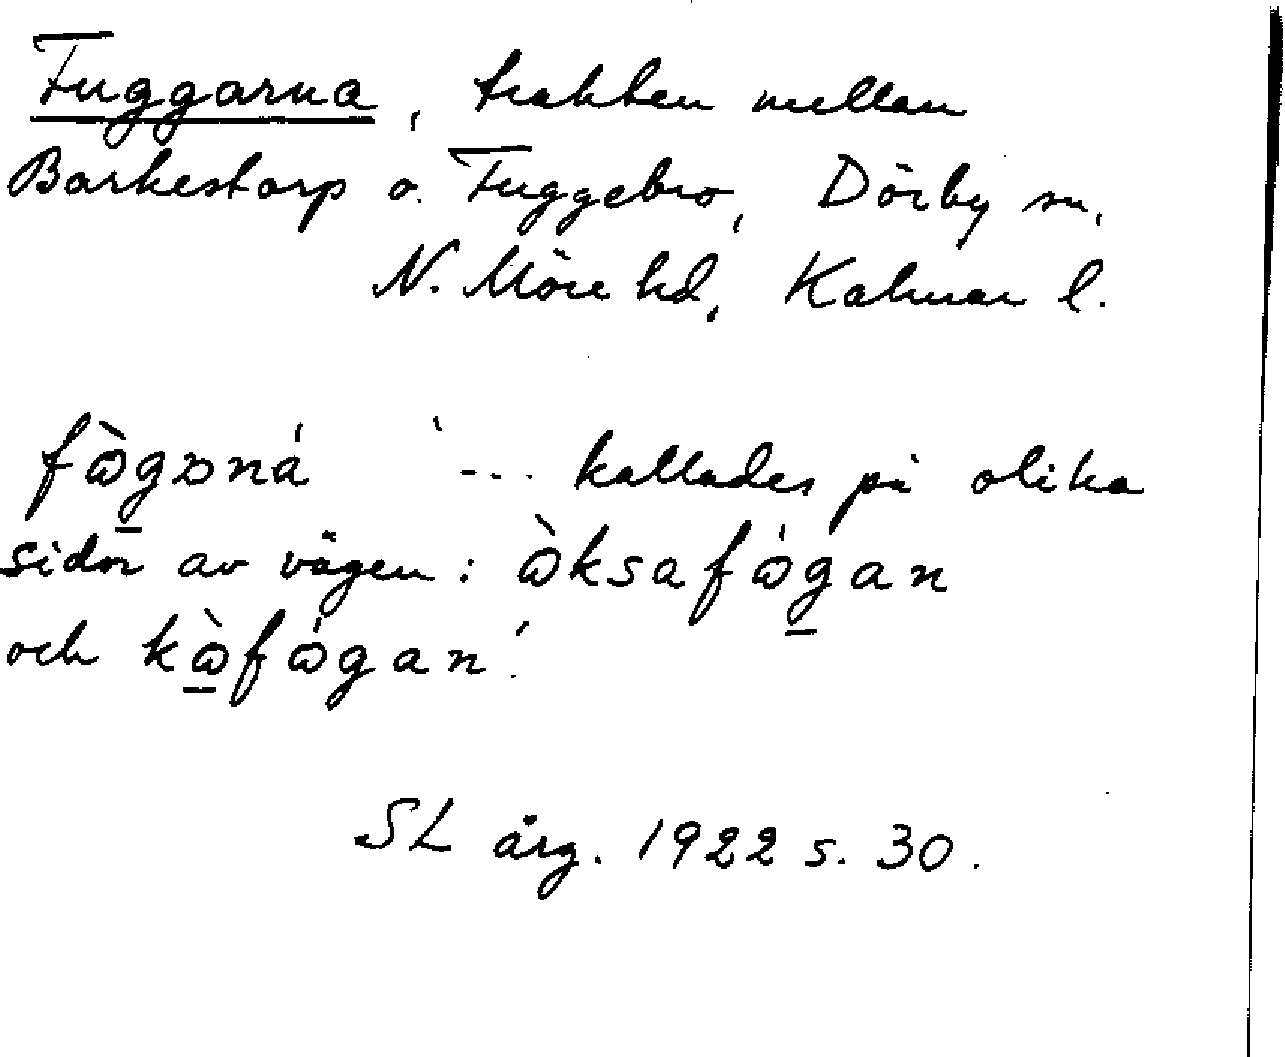 Fuggarna, trakten mellan
Barkestorp o. Fuggebro, Dörby sn,
N. Möre hd, Kalmar l.
fògɒná ‵--. kallades på olika
sidor av vägen: òksafógan
och kòfógan′.
SL årg. 1922 s. 30.